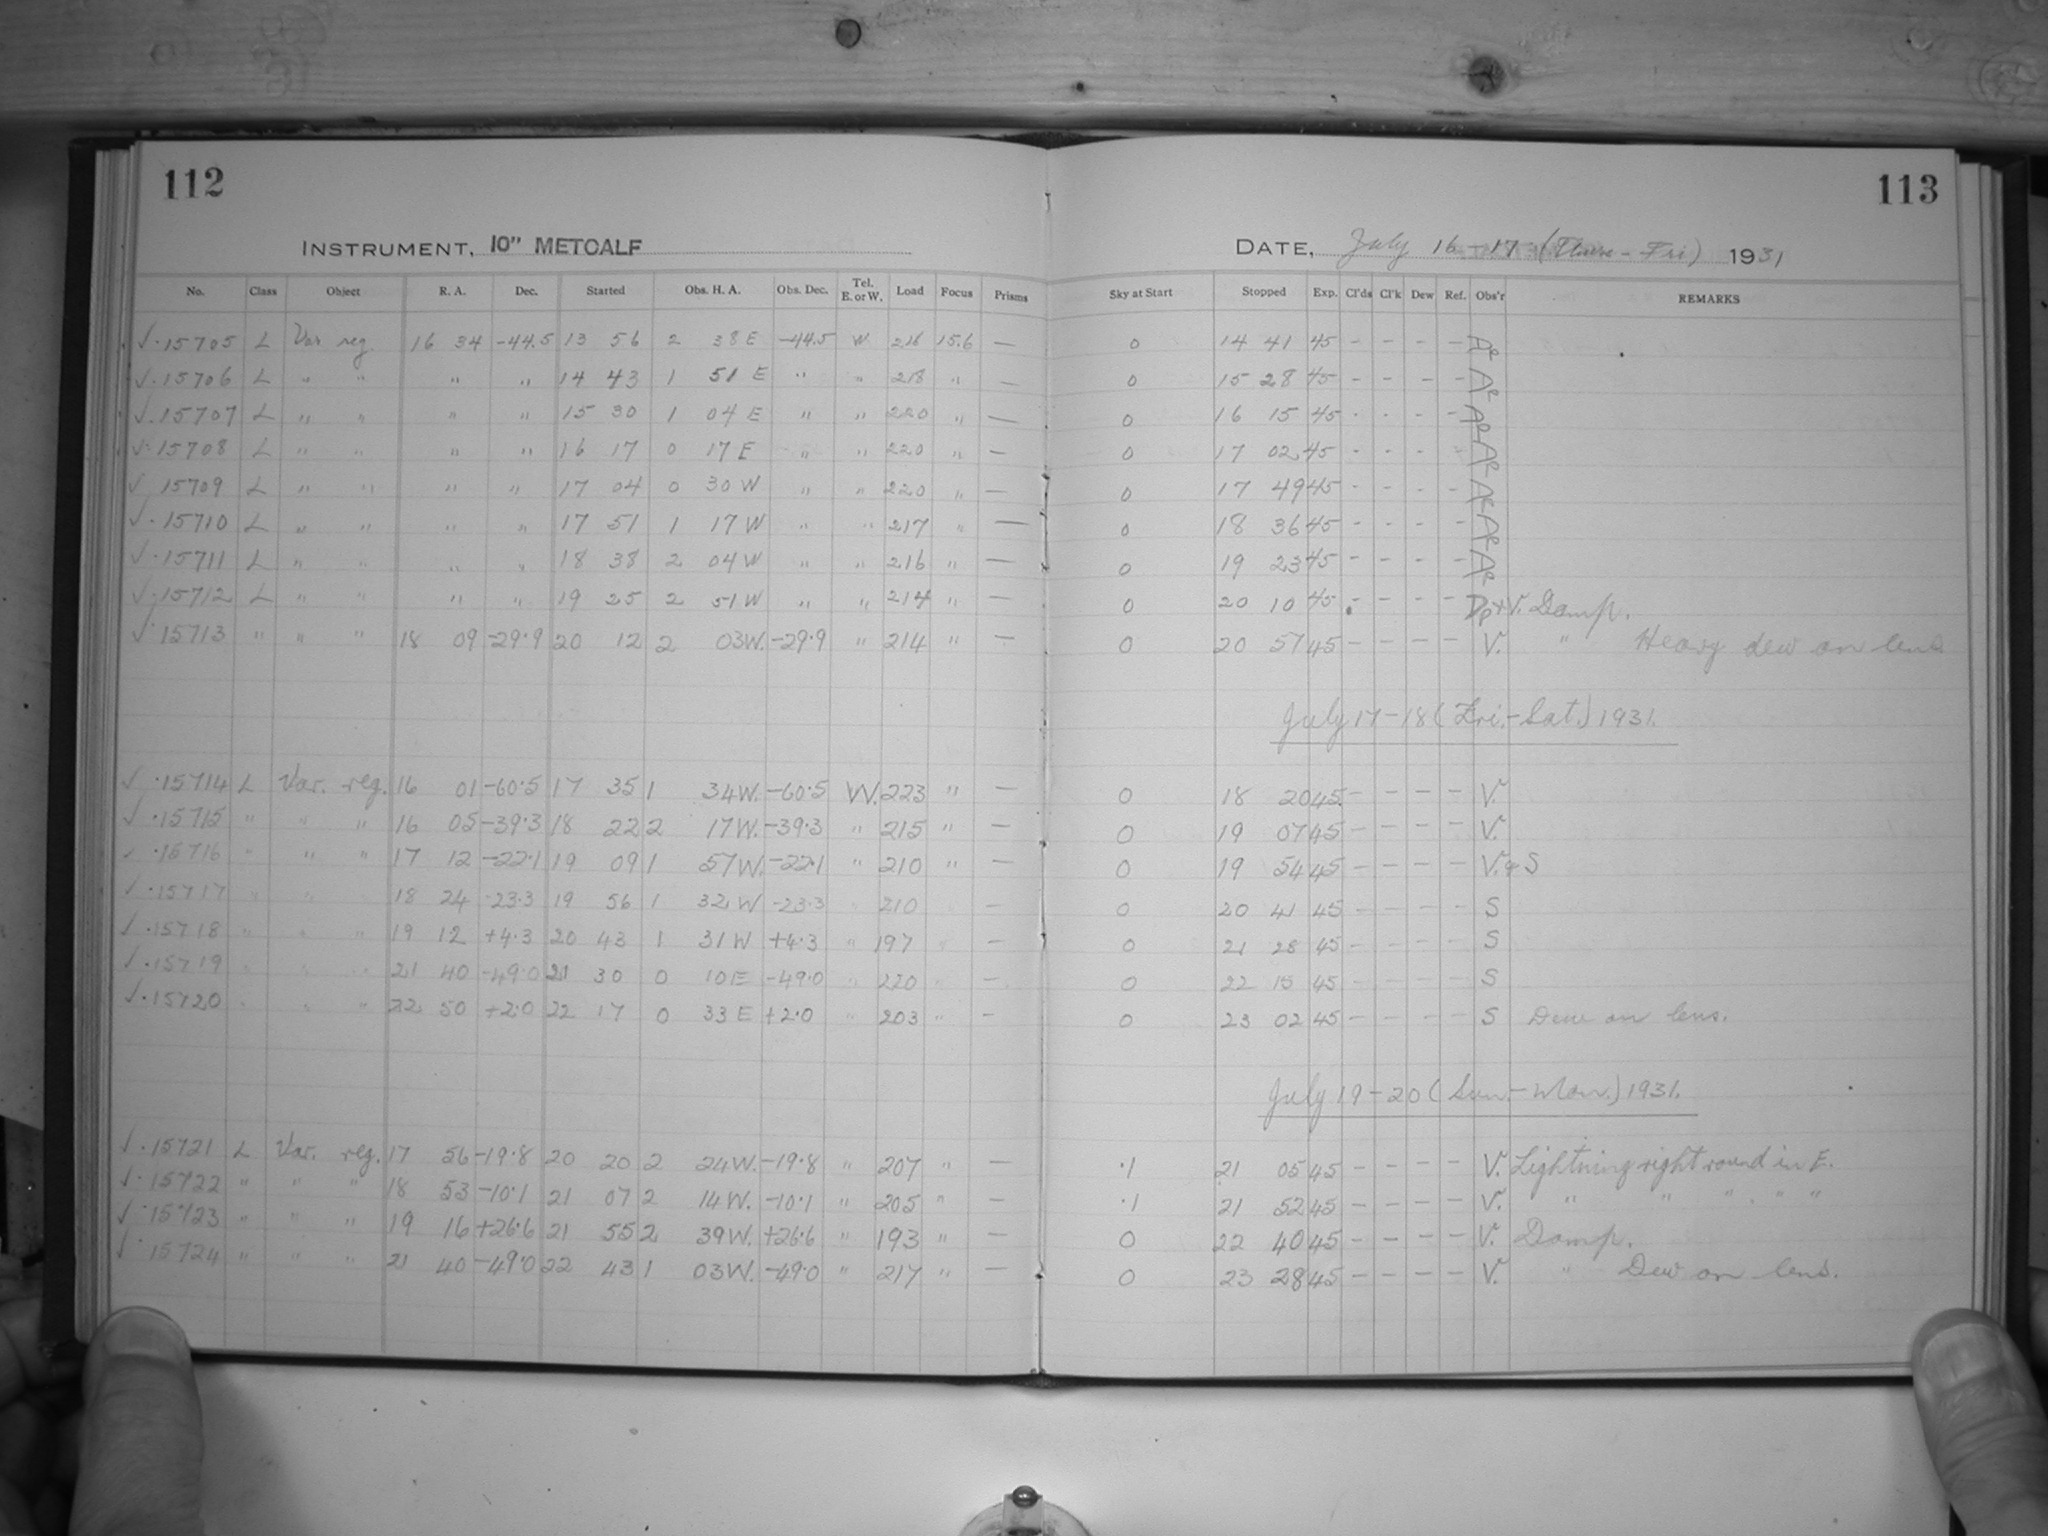 112
113
INSTRUMENT, 10" METCALF
DATE, July 16-17 (Thurs-Fri) 1931
No. Class Object R. A. Dec. Started Obs. H. A. Obs. Dec. Tel. E. or W. Load Focus Prisms Sky at Start Stopped Exp. Cl'ds Cl'k Dew Ref. Obs'r REMARKS
√ · 15705 L Var reg. 16 34 -44.5 13 56 2 38 E -44.5 W. 216 15.6 — 0 14 41 45 - - - -
√ · 15706 L " " " " 14 43 1 51 E " " 218 " — 0 15 28 45 - - - -
√ · 15707 L " " " " 15 30 1 04 E " " 220 " — 0 16 15 45 - - - -
√ · 15708 L " " " " 16 17 0 17 E " " 220 " — 0 17 02 45 - - - -
√ 15709 L " " " " 17 04 0 30 W " " 220 " — 0 17 49 45 - - - -
√ · 15710 L " " " " 17 51 1 17 W " " 217 " — 0 18 36 45 - - - -
√ · 15711 L " " " " 18 38 2 04 W " " 216 " — 0 19 23 45 - - - -
√ · 15712 L " " " " 19 25 2 51 W " " 214 " — 0 20 10 45 - - - - Dp+V. Damp.
√ 15713 " " " 18 09 -29.9 20 12 2 03 W. -29.9 " 214 " — 0 20 57 45 - - - - V. " Heavy dew on lens
July 17-18 (Fri.-Sat.) 1931.
√ · 15714 L Var. reg. 16 01 -60.5 17 35 1 34 W. -60.5 W. 223 " — 0 18 20 45 - - - - V.
√ · 15715 " " " 16 05 -39.3 18 22 2 17 W. -39.3 " 215 " — 0 19 07 45 - - - - V.
√ · 15716 " " " 17 12 -22.1 19 09 1 57 W. -22.1 " 210 " — 0 19 54 45 - - - - V. & S
√ · 15717 " " " 18 24 -23.3 19 56 1 32 W -23.3 " 210 — 0 20 41 45 - - - - S
√ · 15718 " " " 19 12 +4.3 20 43 1 31 W +4.3 " 197 " — 0 21 28 45 - - - - S
√ · 15719 " " " 21 40 -49.0 21 30 0 10 E -49.0 " 220 " — 0 22 15 45 - - - - S
√ · 15720 " " " 22 50 +2.0 22 17 0 33 E +2.0 " 203 " — 0 23 02 45 - - - - S Dew on lens.
July 19-20 (Sun.-Mon.) 1931.
√ · 15721 L Var. reg. 17 56 -19.8 20 20 2 24 W. -19.8 " 207 " — .1 21 05 45 - - - - V. Lightning right round in E.
√ · 15722 " " " 18 53 -10.1 21 07 2 14 W. -10.1 " 205 " — .1 21 52 45 - - - - V. " " " " "
√ · 15723 " " " 19 16 +26.6 21 55 2 39 W. +26.6 " 193 " — 0 22 40 45 - - - - V. Damp.
√ · 15724 " " " 21 40 -49.0 22 43 1 03 W. -49.0 " 217 " — 0 23 28 45 - - - - V. " Dew on lens.